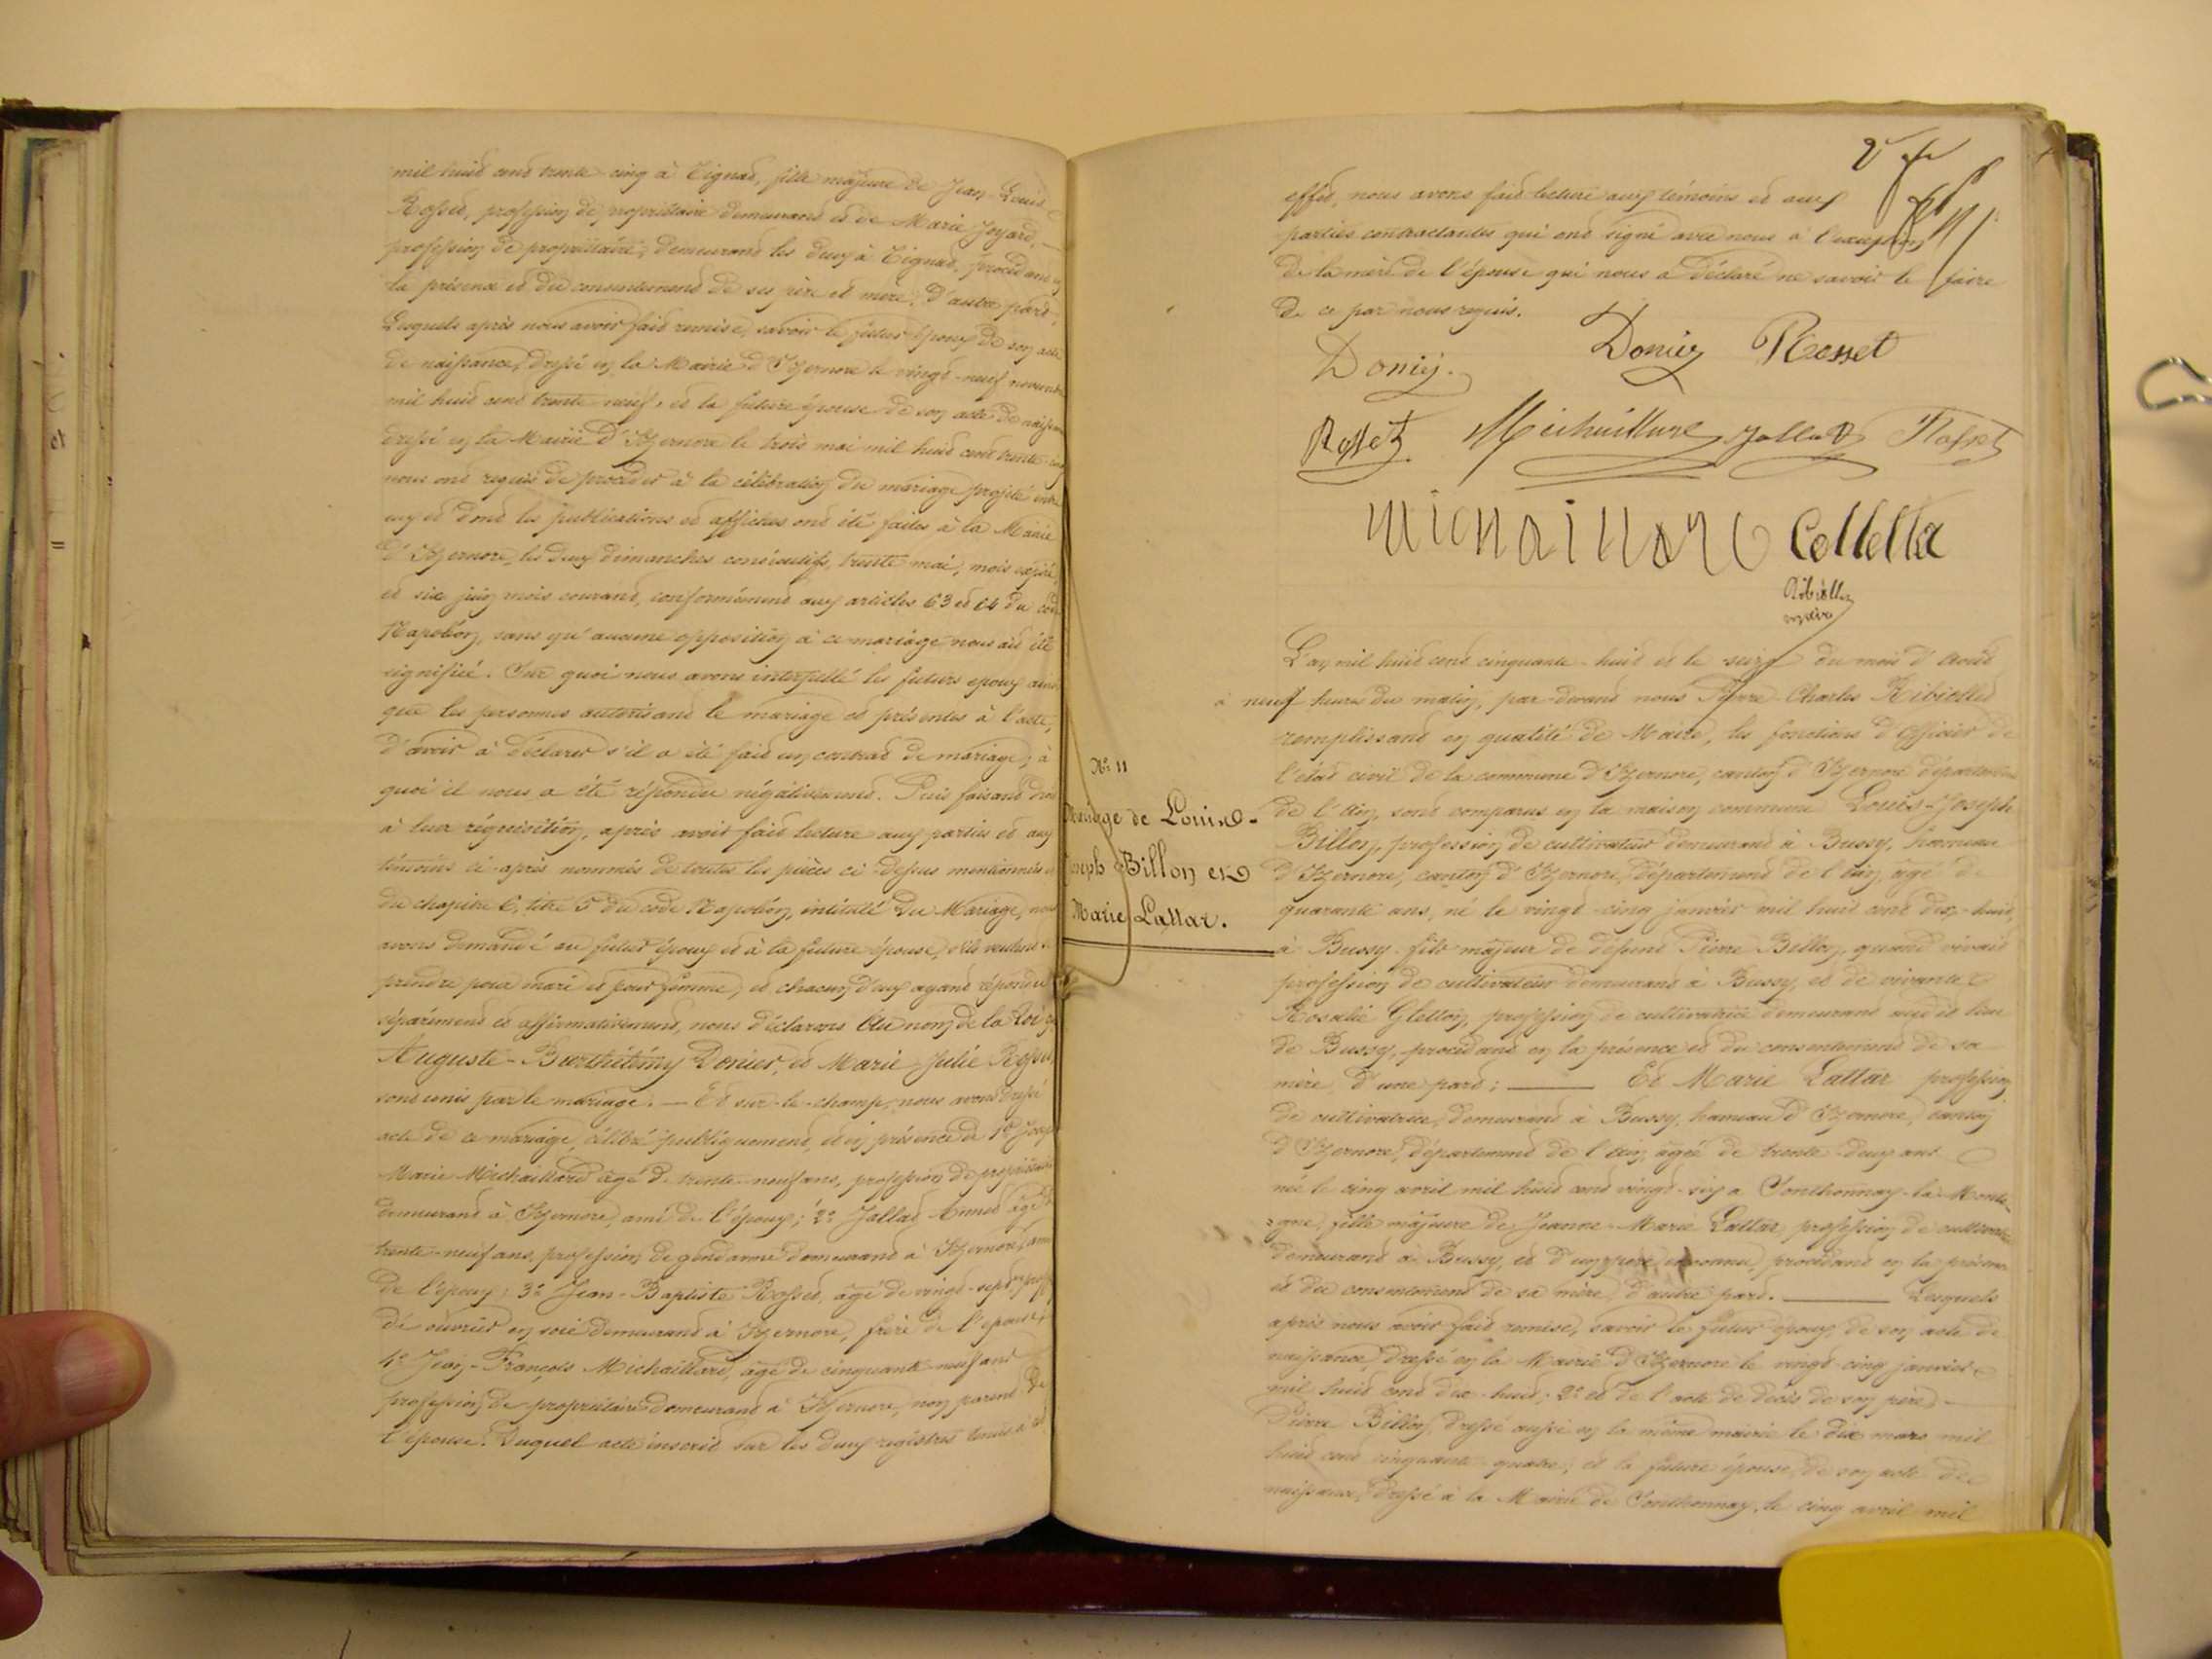 mil huit cent trente-cinq à Tignat, fille majeure de Jean-Louis
Rosset, profession de propriétaire demeurant et de Marie Joyard,
profession de propriétaire, demeurant les deux à Tignat, procédant en
la présence et du consentement de ses père et mère, d'autre part,
Lesquels après nous avoir fait remise, savoir le futur époux de son acte
de naissance, dressé en la Mairie d'Izernore le vingt-neuf novembre
mil huit cent trente neuf, et la future épouse de son acte de naissance
dressé en la Mairie d'Izernore le trois mai mil huit cent trente-cinq
nous ont requis de procéder à la célébration du mariage projeté entre
eux et dont les publications et affiches ont été faites à la Mairie
d'Izernore, les deux dimanches consécutifs, trente mai, mois expiré,
et six juin mois courant, conformément aux articles 63 et 64 du code
Napoléon, sans qu'aucune opposition à ce mariage nous ait été
signifiée. Sur quoi nous avons interpellé les futurs epoux ainsi
que les personnes autorisant le mariage et présentes à l'acte,
d'avoir à déclarer s'il a été fait un contrat de mariage; à
quoi il nous a été répondu négativement. Puis faisant droit
à leur réquisition, après avoir fait lecture aux parties et aux
témoins ci-après nommés de toutes les pièces ci-dessus mentionnées et
du chapitre 6, titre 5 du code Napoléon, intitulé Du Mariage, nous
avons demandé au futur époux et à la future épouse, s'ils veulent se
prendre pour mari et pour femme, et chacun d'eux ayant répondu
séparément et affirmativement, nous déclarons Au nom de la Loi que
Auguste-Barthélémy Donier, et Marie-Julie Rosset,
sont unis par le mariage. — Et sur-le-champ, nous avons dressé
acte de ce mariage célébré publiquement, et en présence de 1° Joseph
Marie Michaillard âgé de trente-neuf ans, profession de propriétaire
demeurant à Izernore, ami de l'époux; 2° Jallad âgé de
trente-neuf ans, profession de gendarme demeurant à Izernore, ami
de l'époux; 3° Jean-Baptiste Rosset, âgé de vingt-sept ans, profession
de ouvrier en soie demeurant à Izernore, frère de l'epouse,
4° Jean-François Michaillard, âgé de cinquante-neuf ans
profession de propriétaire demeurant à Izernore, non parent de
l'épouse. Duquel acte inscrit sur les deux registres tenus à cet
effet, nous avons fait lecture aux témoins et aux
parties contractantes qui ont signé avec nous à l'exception
de la mère de l'épouse qui nous a déclaré ne savoir le faire
de ce par nous requis.
Donier. Donier Rosset
Rosset Michaillard Jallad Rosset
Michaillard Colletta
Ribiollet
maire
N° 11
Mariage de Louis-
Joseph Billon et
Marie Lattar.
L'an mil huit cent cinquante-huit et le seize du mois d'Août
à neuf heures du matin, par-devant nous Pierre-Charles Ribiollet
remplissant en qualité de Maire, les fonctions d'Officier de
l'état civil de la commune d'Izernore, canton d'Izernore département
de l'Ain, sont comparus en la maison commune Louis-Joseph
Billon, profession de cultivateur demeurant à Bussy, hameau
d'Izernore, canton d'Izernore, département de l'Ain, âgé de
quarante ans, né le vingt-cinq janvier mil huit cent dix-huit,
à Bussy fils majeur de défunt Pierre Billon, quand vivait
profession de cultivateur demeurant à Bussy, et de vivante
Rosalie Gletton, profession de cultivatrice demeurant audit lieu
de Bussy, procédant en la présence et du consentement de sa
mère d'une part; — Et Marie Lattar profession
de cultivatrice, demeurant à Bussy, hameau d'Izernore, canton
d'Izernore, département de l'Ain, âgée de trente-deux ans
née le cinq avril mil huit cent vingt-six a Sonthonnay-la-Monta-
=gne, fille majeure de Jeanne-Marie Lattar profession de cultivatrice
demeurant à Bussy, et d'un père inconnu, procédant en la présence
et du consentement de sa mère, d'autre part. — Lesquels
après nous avoir fait remise, savoir le futur époux, de son acte de
naissance, dressé en la Mairie d'Izernore le vingt-cinq janvier
mil huit cent dix-huit; 2° et de l'acte de décès de son père
Pierre Billon, dressé aussi en la même mairie le dix mars mil
huit cent cinquante-quatre; et la future épouse, de son acte de
naissance, dressé à la Mairie de Sonthonnay, le cinq avril mil